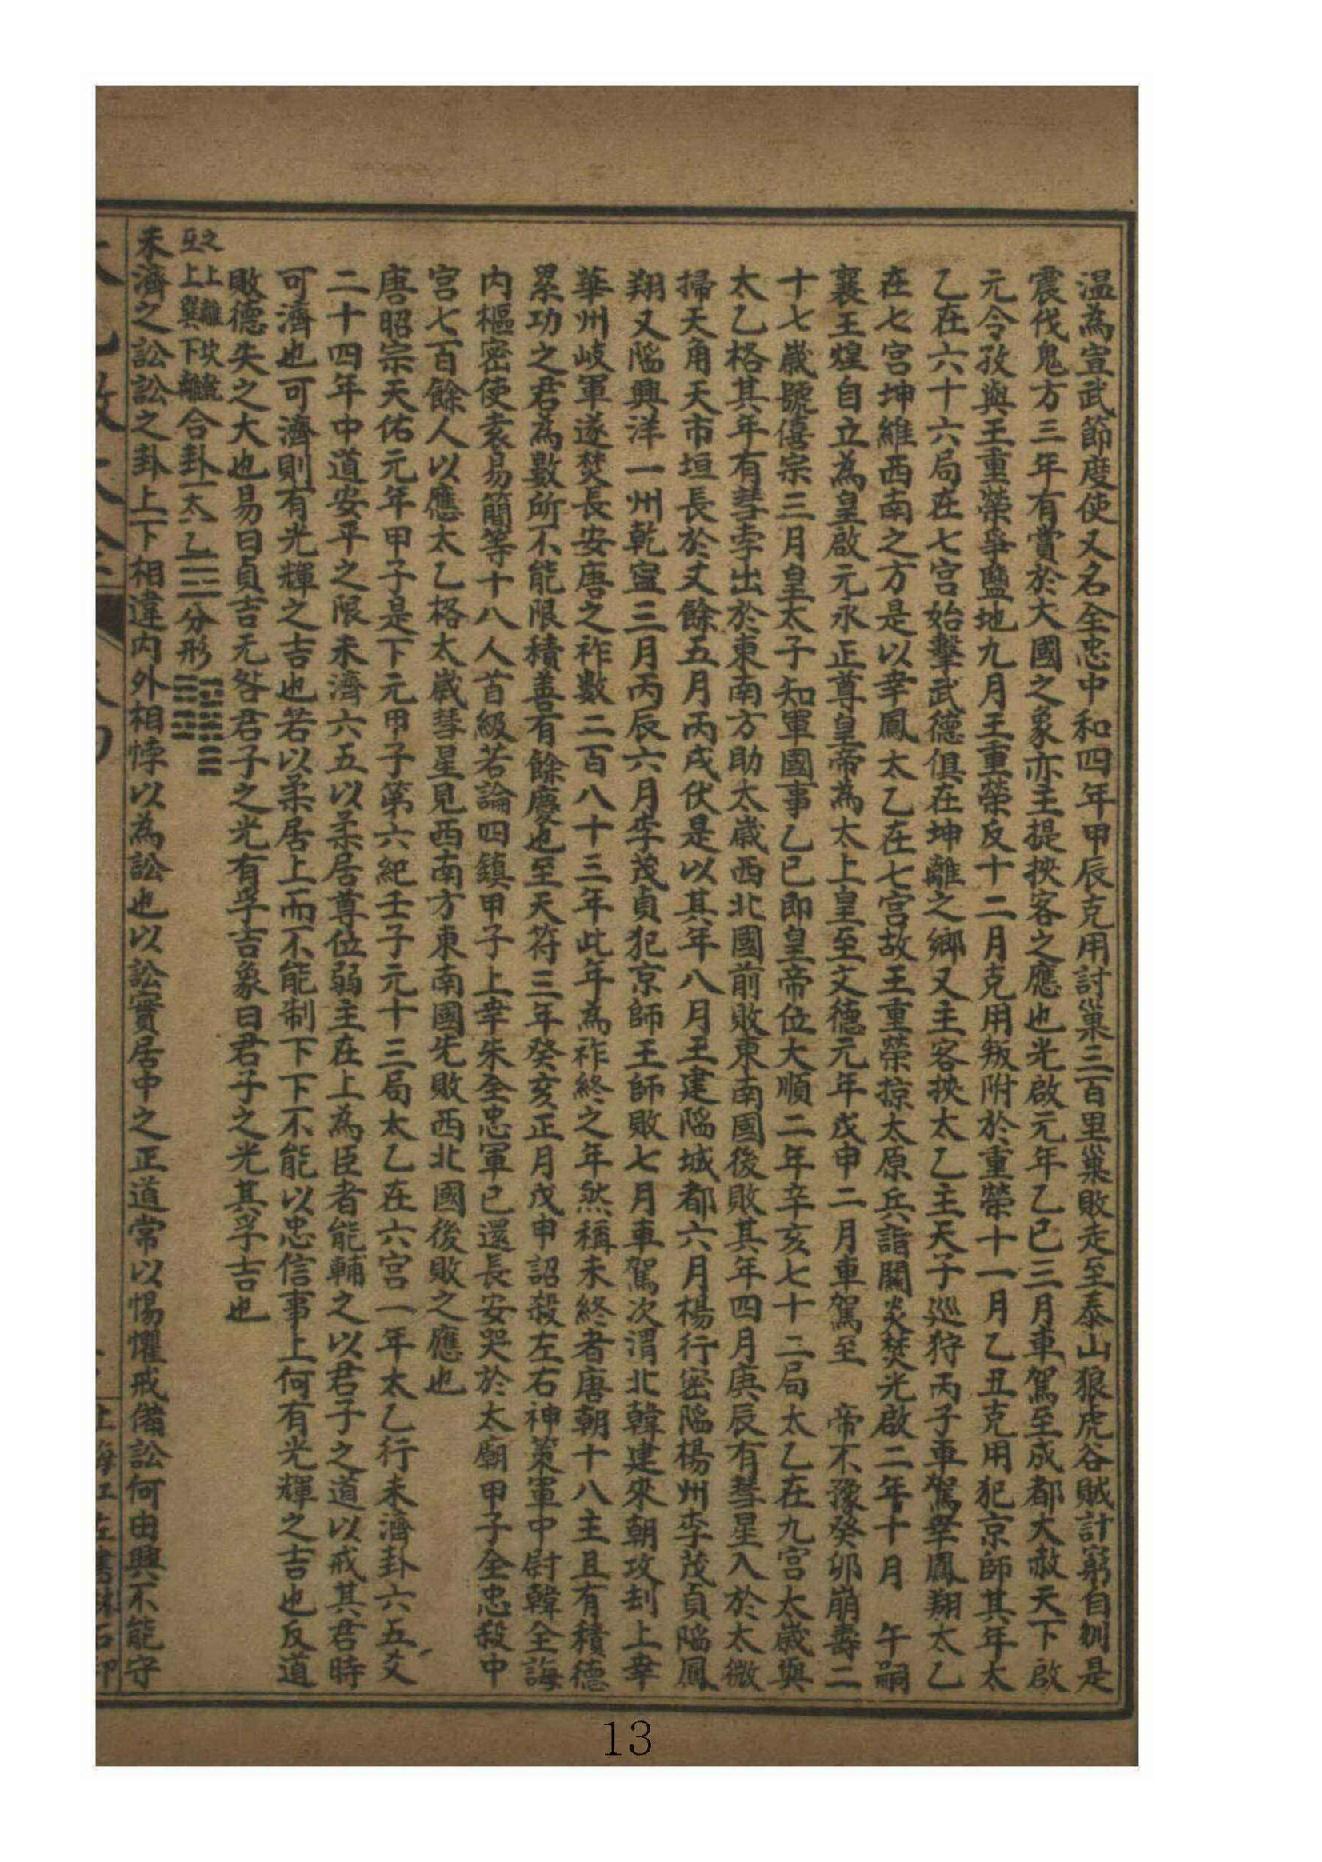 溫為宣武節度使又名全忠中和四年甲辰克用討巢三百里巢敗走至泰山狼虎谷賊計窮自刎是
震伐鬼方三年有賞於大國之象亦主提挾客之應也光啟元年乙巳三月車駕至成都大赦天下啟
元令孜與王重榮爭鹽地九月王重榮反十二月克用叛附於重榮十一月乙丑克用犯京師其年太
乙在六十六局在七宮始擊武德俱在坤離之鄉又主客挾太乙主天子巡狩丙子車駕幸鳳翔太乙
在七宮坤維西南之方是以幸鳳太乙在七宮故王重榮掠太原兵詣闕炎焚光啟二年十月 午嗣
襄王煌自立為皇啟元永正尊皇帝為太上皇至文德元年戊申二月車駕至 帝不豫癸卯崩壽二
十七歲號僖宗三月皇太子知軍國事乙巳即皇帝位大順二年辛亥七十二局太乙在九宮太歲與
太乙格其年有彗孛出於東南方助太歲西北國前敗東南國後敗其年四月庚辰有彗星入於太微
掃天角天市垣長於丈餘五月丙戌伏是以其年八月王建陷城都六月楊行密陷楊州李茂貞陷鳳
翔又陷興洋一州乾寧三月丙辰六月李茂貞犯京師王師敗七月車駕次渭北韓建來朝攻刦上幸
華州岐軍遂焚長安唐之祚數二百八十三年此年為祚終之年然稱未終者唐朝十八主且有積德
累功之君為數所不能限積善有餘慶也至天符三年癸亥正月戊申詔殺左右神策軍中尉韓全誨
內樞密使袁易簡等十八人首級若論四鎮甲子上幸朱全忠軍已還長安哭於太廟甲子全忠殺中
宮七百餘人以應太乙格太歲彗星見西南方東南國先敗西北國後敗之應也
唐昭宗天佑元年甲子是下元甲子第六紀壬子元十三局太乙在六宮一年太乙行未濟卦六五爻
二十四年中道安平之限未濟六五以柔居尊位弱主在上為臣者能輔之以君子之道以戒其君時
可濟也可濟則有光輝之吉也若以柔居上而不能制下下不能以忠信事上何有光輝之吉也反道
敗德失之大也易曰貞吉无咎君子之光有孚吉象曰君子之光其孚吉也
之上離坎
互上巽下離合卦太乙三分形
未濟之訟訟之卦上下相違內外相悖以為訟也以訟實居中之正道常以惕懼戒備訟何由興不能守
13